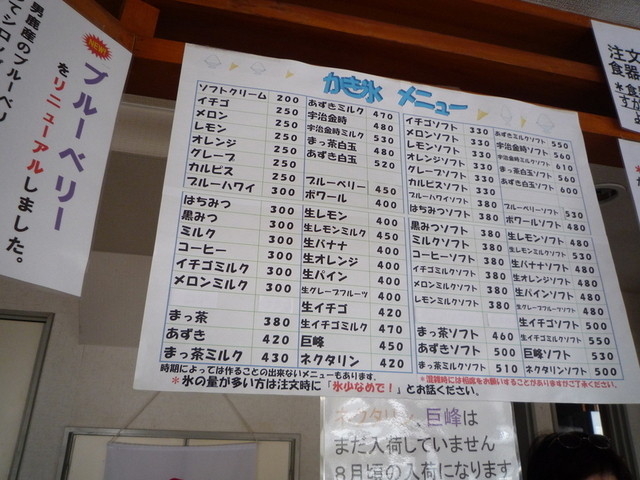 男鹿産のブルーベリ
てシロッ
NEW
ブルーベリー
をリニューアルしました。
かき氷 メニュー
ソフトクリーム 200
イチゴ 250
メロン 250
レモン 250
オレンジ 250
グレープ 250
カルピス 250
ブルーハワイ 300
はちみつ 300
黒みつ 300
ミルク 300
コーヒー 300
イチゴミルク 300
メロンミルク 300
まっ茶 380
あずき 420
まっ茶ミルク 430
あずきミルク 470
宇治金時 480
宇治金時ミルク 530
まっ茶白玉 480
あずき白玉 520
ブルーベリー 450
ボワール 400
生レモン 400
生レモンミルク 450
生バナナ 400
生オレンジ 400
生パイン 400
生グレープフルーツ 400
生イチゴ 420
生イチゴミルク 470
巨峰 450
ネクタリン 420
イチゴソフト 330
メロンソフト 330
レモンソフト 330
オレンジソフト 330
グレープソフト 330
カルピスソフト 330
ブルーハワイソフト 380
はちみつソフト 380
黒みつソフト 380
ミルクソフト 380
コーヒーソフト 380
イチゴミルクソフト 380
メロンミルクソフト 380
レモンミルクソフト 380
まっ茶ソフト 460
あずきソフト 500
まっ茶ミルクソフト 510
あずきミルクソフト 550
宇治金時ソフト 560
宇治金時ミルクソフト 610
まっ茶白玉ソフト 560
あずき白玉ソフト 600
ブルーベリーソフト 530
ボワールソフト 480
生レモンソフト 480
生レモンミルクソフト 530
生バナナソフト 480
生オレンジソフト 480
生パインソフト 480
生グレープフルーツソフト 480
生イチゴソフト 500
生イチゴミルクソフト 550
巨峰ソフト 530
ネクタリンソフト 500
時期によっては作ることの出来ないメニューもあります。
*混雑時には相席をお願いすることがありますがご了承ください。
*氷の量が多い方は注文時に「氷少なめで!」とお話ください。
ネクタリン、巨峰は
まだ入荷していません
8月頃の入荷になります
注文
食器